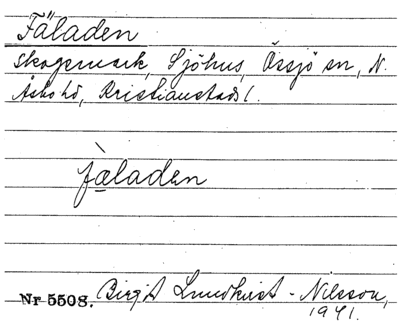 Fäladen
Skogsmark, Sjöhus, Össjö sn, N.
Åsbo hd, Kristianstads l.
fæladen
Nr 5508. Birgit Lundkvist-Nilsson,
1941.